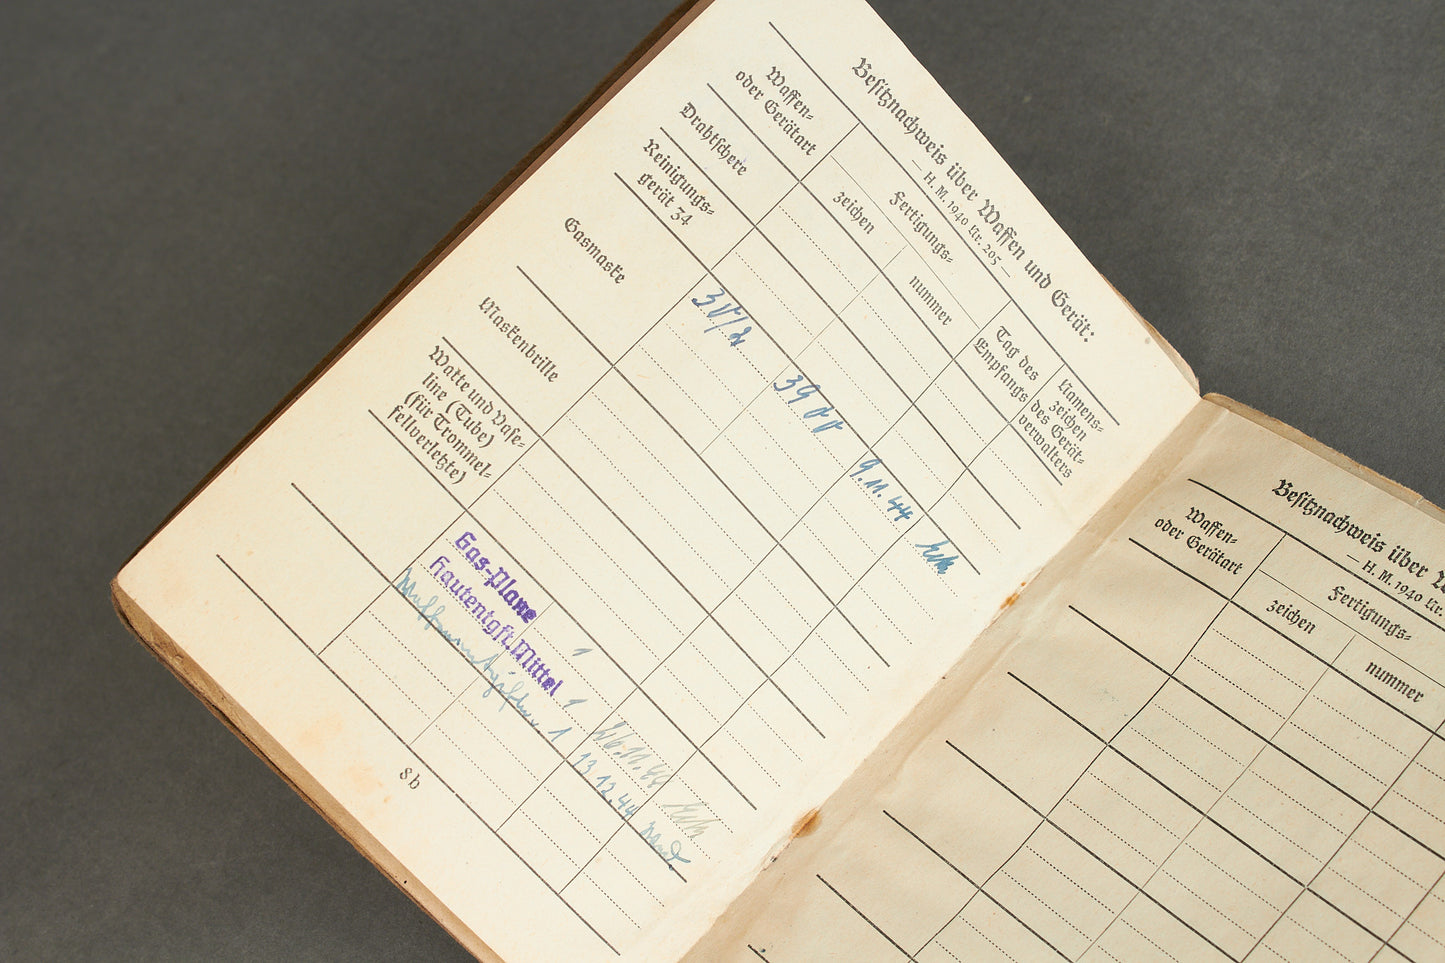 Besitznachweis über Waffen und Gerät:
— H. M. 1940 Nr. 205 —
Waffen-
oder Gerätart
Fertigungs-
zeichen
nummer
Tag des
Empfangs
Namens-
zeichen
des Gerät-
verwalters
Drahtschere
Reinigungs-
gerät 34
Gasmaske
39
9.11.44
Maskenbrille
Watte und Vase-
line (Tube)
(für Trommel-
fellverletzte)
Gas-Plane 1
Hautentgft.Mittel 1
1 13 12.44
8b
Besitznachweis über
— H. M. 1940 Nr.
Waffen-
oder Gerätart
Fertigungs-
zeichen
nummer